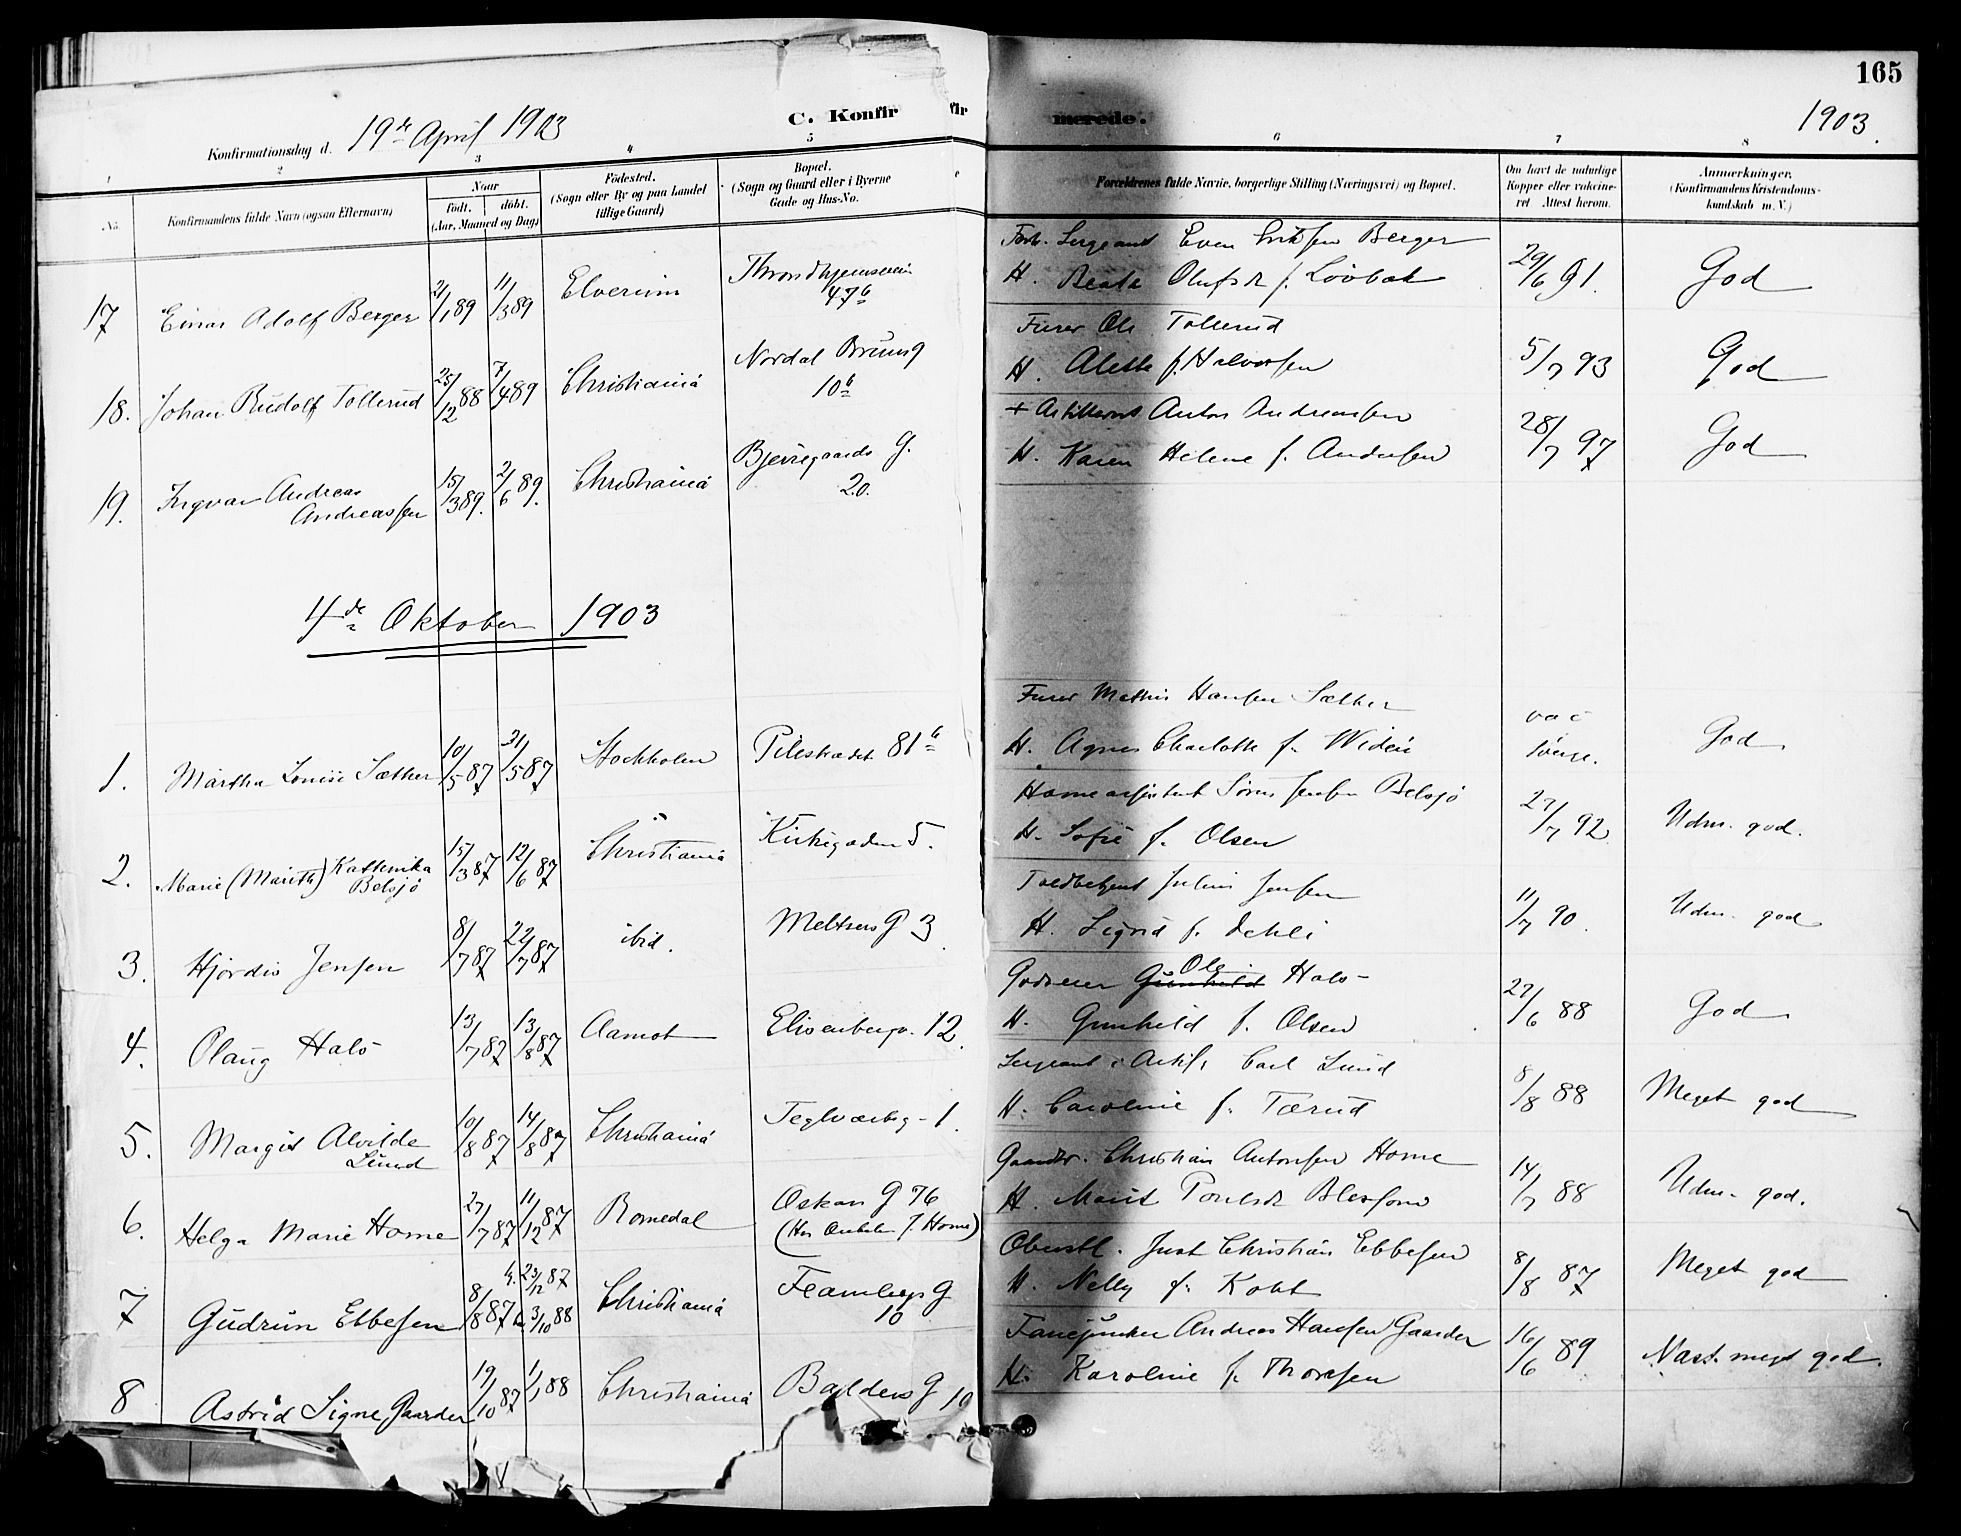 165
C. Konfir
fir
merede.
1903.
Konfirmationsdag d. 19de April 1903
1 2 3 4 5 6 7 8
No.
Konfirmandens fulde Navn (ogsaa Efternavn)
Naar
født. døbt.
(Aar, Maaned og Dag)
Fødested.
(Sogn eller By og paa Landet
tillige Gaard)
Bopæl.
(Sogn og Gaard eller i Byerne
Gade og Hus-No.
Forældrenes fulde Navne, borgerlige Stilling (Næringsvei) og Bopæl.
Om havt de naturlige
Kopper eller vaccine-
ret Attest herom.
Anmærkninger.
(Konfirmandens Kristendoms-
kundskab m. V.)
17 Einar Adolf Berger 21/1 89 11/3 89 Elverum Throndhjemsveien
47b
Sergeant Even Berger
H. Beate Olufsd. f. Løvbak 29/6 91. God
18. Johan Rudolf Tollerud 25/12 88 7/4 89 Christiania Nordal Brunsg
10b
Furer Ole Tollerud
H. Alette f. Halvorsen 5/7 93 God
19. Ingvar Andreas
Andreassen 15/3 89. 2/6 89. Christiania Bjerregaards G.
20.
+ Anton Andreassen
H. Karen Helene f. Andersen 28/7 97 God
4de Oktober 1903
1. Martha Louise Sæther 10/5 87 31/5 87 Stockholm Pilestrædet 81b
Furer Mathis Hansen Sæther
H. Agnes Charlotte f. Widén vac
God
2. Marie (Marith) Kathinka
Belsjø 15/3 87 12/6 87 Christiania Kirkegaden 5.
Søren Jensen Belsjø
H. Sofie f. Olsen 27/7 92 Udm. god.
3. Hjørdis Jensen 8/7 87 22/7 87 ibid. Meltzers G 3.
Toldbetjent Julius Jensen
H. Sigrid f. Dehli 11/7 90. Udm. god
4. Olaug Hals 13/7 87 13/8 87 Aamot Elisenbergv. 12.
Godseier Gunhild Ole Hals
H. Gunhild f. Olsen 27/6 88 God
5. Margit Alvilde
Lund 10/8 87 14/8 87 Christiania Teglverksg. 1.
Sergeant i Artill. Carl Lund
H. Caroline f. Tærud 8/8 88 Meget god
6. Helga Marie Horne 27/7 87 11/12 87 Romedal Oskars G 76
(Hos Onkelen J. Horne)
Gaardbr. Christian Antonsen Horne
H. Marit Poulsd. 14/7 88 Udm. god.
7 Gudrun Ebbesen 8/8 87 h. 23/12 87
k. 3/10 88 Christiania Fearnleys G
10
Oberstl. Just Christian Ebbesen
H. Nelly f. Koht 8/8 87 Meget god
8 Astrid Signe Gaarder 19/10 87 1/1 88 Christiania Balders G 10
Fanejunker Andreas Hansen Gaarder
H. Karoline f. Thoresen 16/6 89 Næst. meget god.